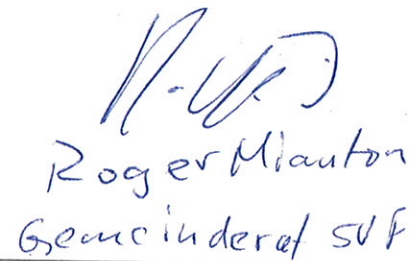 Roger Miauton
Gemeinderat SVP